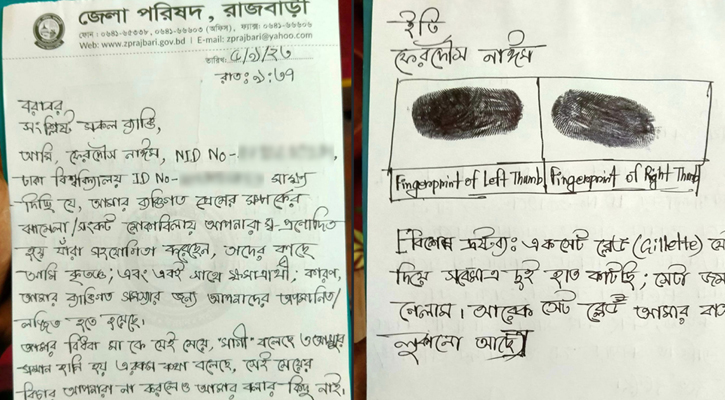 জেলা পরিষদ, রাজবাড়ী
ফোন : ০৬৪১-৬৫৩৩৮, ০৬৪১-৬৬৬০৩ (অফিস), ফ্যাক্স: ০৬৪১-৬৬৬০৬
Web: www.zprajbari.gov.bd | E-mail: zprajbari@yahoo.com
তারিখ: ৫/১/২৩
রাত: ১:৩৭
বরাবর
সংশ্লিষ্ট সকল ব্যক্তি,
আমি, ফেরদৌস নাঈম, NID No-
ঢাকা বিশ্ববিদ্যালয় ID No- সাক্ষ্য
দিচ্ছি যে, আমার ব্যক্তিগত প্রেমের সম্পর্কের
ঝামেলা/সংকট মোকাবিলায় আপনারা স্ব-প্রণোদিত
হয়ে যাঁরা সহযোগিতা করেছেন, তাদের কাছে
আমি কৃতজ্ঞ; এবং একই সাথে ক্ষমাপ্রার্থী; কারণ,
আমার ব্যক্তিগত সমস্যার জন্য আপনাদের অপমানিত/
লজ্জিত হতে হয়েছে।
আমার বিধবা মা কে যেই মেয়ে, 'মাগী' বলেছে ও আম্মুর
সম্মান হানি হয় এরকম কথা বলেছে, সেই মেয়ের
বিচার আপনারা না করলেও আমার বলার কিছু নাই।
ইতি
ফেরদৌস নাঈম
Fingerprint of Left Thumb
Fingerprint of Right Thumb
[বিশেষ দ্রষ্টব্য: এক সেট ব্লেড (Gillette)
দিয়ে সবেমাত্র দুই হাত কাটছি; সেটা জমা
দিলাম। আরেক সেট ব্লেড আমার
লুকানো আছে]